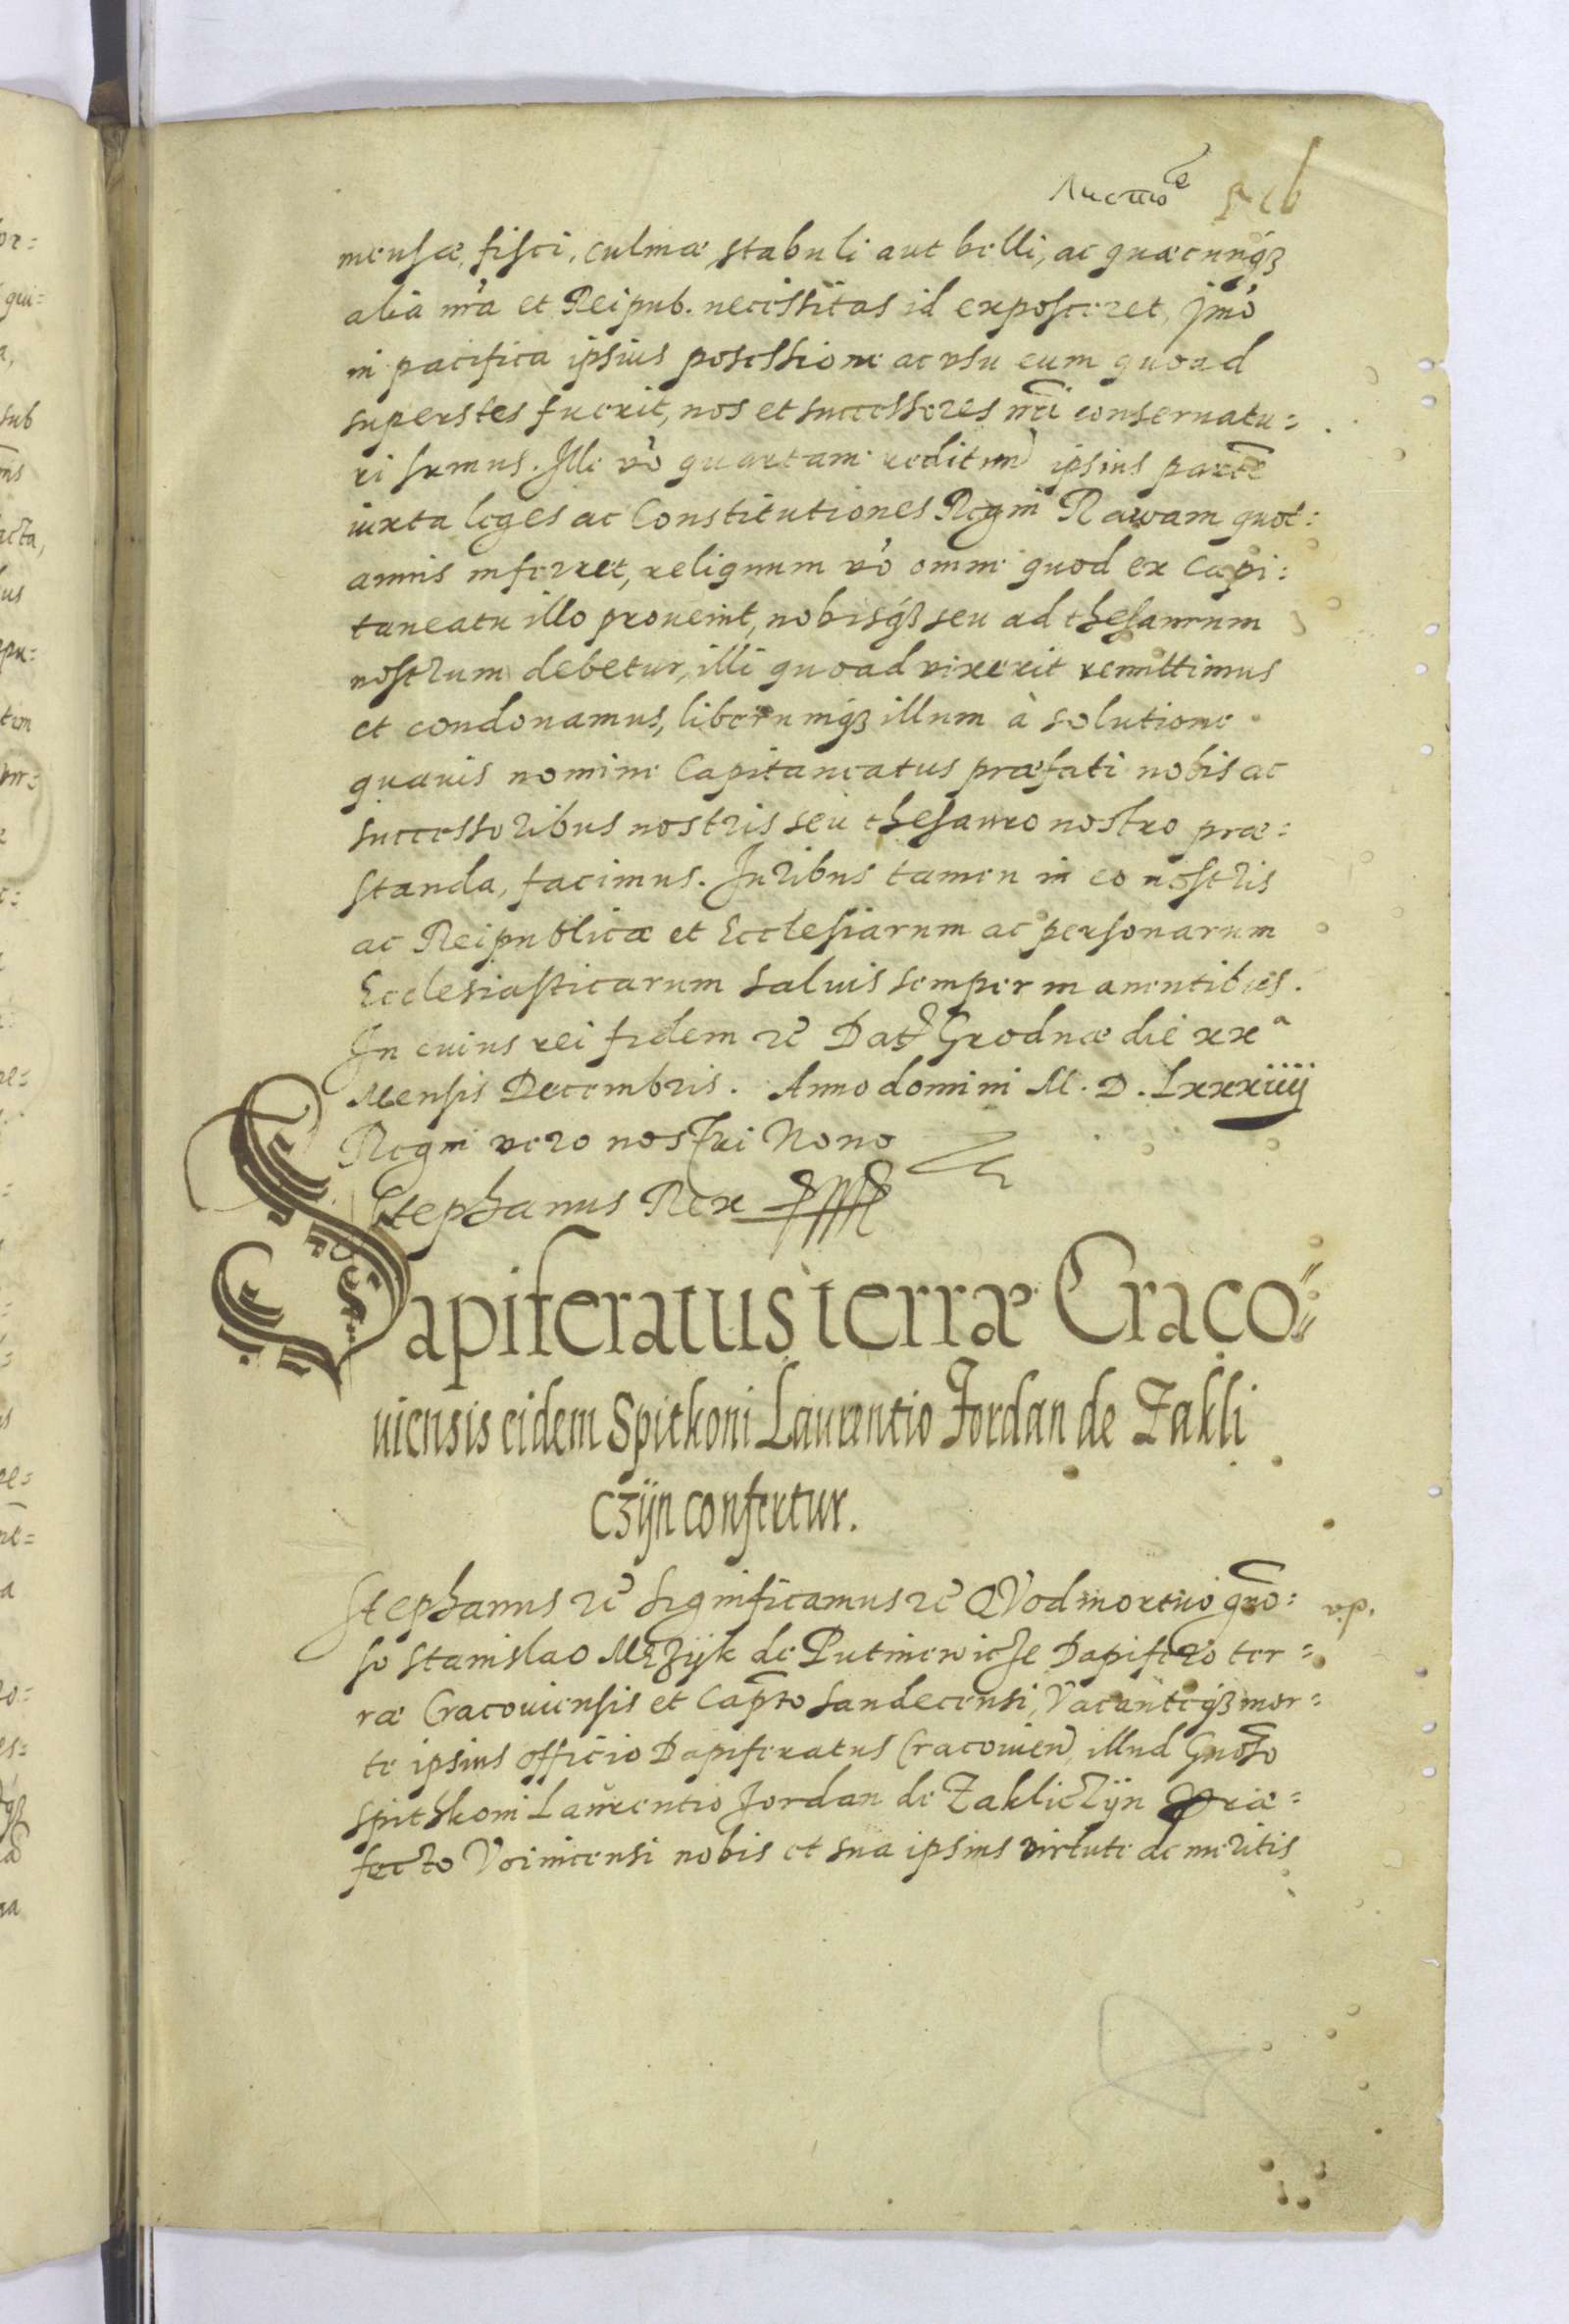 Листовъ
mensæ, fisci, culinæ, stabuli aut belli, ac quæcunq́ꝫ
alia nr̃a et Reipub. necessitas id exposceret, Jmò
in pacifica ipsius possessione ac vsu eum quoad
superstes fuerit, nos et successores nr̃i conseruatu=
ri sumus. Ille vò quartam redituũ ipsius partẽ
iuxta leges ac Constitutiones Regni Rawam quot=
annis inferret, reliquum vò omne quod ex Capi=
taneatu illo proueniet, nobisq́ꝫ seu ad thesaurum
nostrum debetur, illi quoad vixerit remittimus
et condonamus, liberumq́ꝫ illum à solutione
quauis nomine Capitaneatus præfati nobis ac
successoribus nostris seu thesauro nostro præ=
standa, facimus. Juribus tamen in eo nostris
ac Reipublicæ et Ecclesiarum ac personarum
Ecclesiasticarum saluis semper manentibus.
In cuius rei fidem ꝛc̃ Dat̃ Grodnæ die xxᵃ
Mensis Decembris. Anno domini M. D. Lxxxiiij
Regni vero nostri Nono
Stephanus Rex
Dapiferatus terræ Craco=
uiensis eidem Spitkoni Laurentio Jordan de Zakli
czÿn confertur.
Stephanus ꝛc̃ Significamus ꝛc̃ QVod mortuo gñro= v.p.
so Stanislao Mężÿk de Dapifero ter=
ræ Cracouiensis et Cap̃to Sandecensi, Vacanteq́ꝫ mor=
te ipsius officio Dapiferatus Cracouien̄ illud Gnõso
Spithkoni Laurentio Jordan de Zakliczÿn Præ=
fecto Voinicensi nobis et sua ipsius virtute de meritis